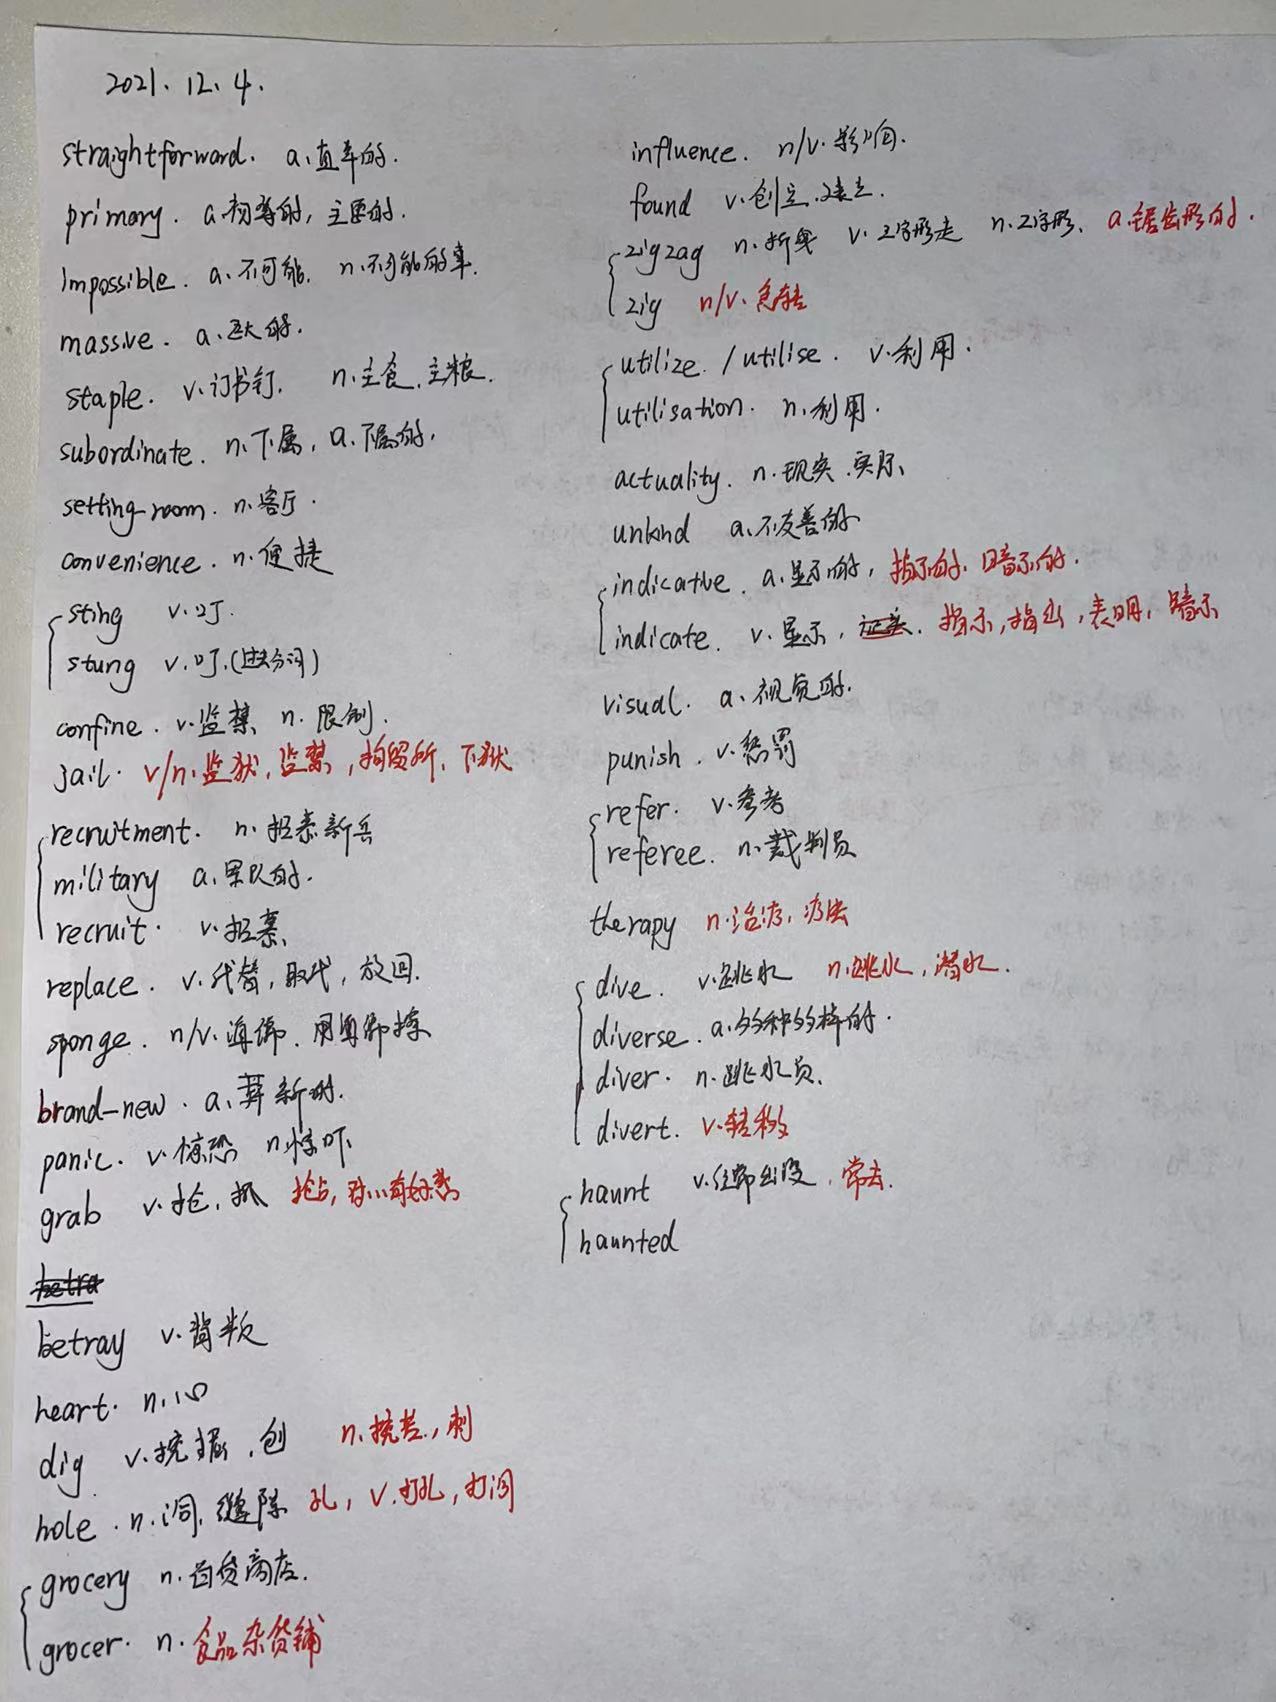 2021.12.4.
straightforward. a.直率的.
primary. a.初等的, 主要的.
impossible. a.不可能. n.不可能的事.
massive. a.巨大的.
staple. v.订书钉. n.主食.主粮.
subordinate. n.下属, a.下属的.
setting-room. n.客厅.
convenience. n.便捷
sting v.叮.
stung v.叮.(过去分词)
confine. v.监禁 n.限制.
jail. v/n.监狱, 监禁, 拘留所, 下狱
recruitment. n.招募新兵
military a.军队的.
recruit. v.招募.
replace. v.代替, 取代, 放回.
sponge. n/v.海绵. 用海绵擦
brand-new. a.崭新的.
panic. v.惊恐 n.惊吓
grab v.抢, 抓 抢占, 对…有好感
betra
betray v.背叛
heart. n.心
dig v.挖掘, 刨 n.挖苦, 刺
hole. n.洞, 缝隙 孔, v.打孔, 打洞
grocery n.百货商店.
grocer. n.食品杂货铺
influence. n/v.影响.
found v.创立.建立.
zigzag n.折线 v.Z字形走 n.Z字形. a.锯齿形的.
zig n/v.急转
utilize. /utilise. v.利用.
utilisation. n.利用.
actuality. n.现实.实际.
unkind a.不友善的
indicative. a.显示的, 指示的. 暗示的.
indicate. v.显示, 证实. 指示, 指出, 表明, 暗示
visual. a.视觉的.
punish. v.惩罚
refer. v.参考
referee. n.裁判员
therapy n.治疗, 疗法
dive. v.跳水 n.跳水, 潜水.
diverse. a.多种多样的.
diver. n.跳水员.
divert. v.转移
haunt v.经常出没, 常去.
haunted